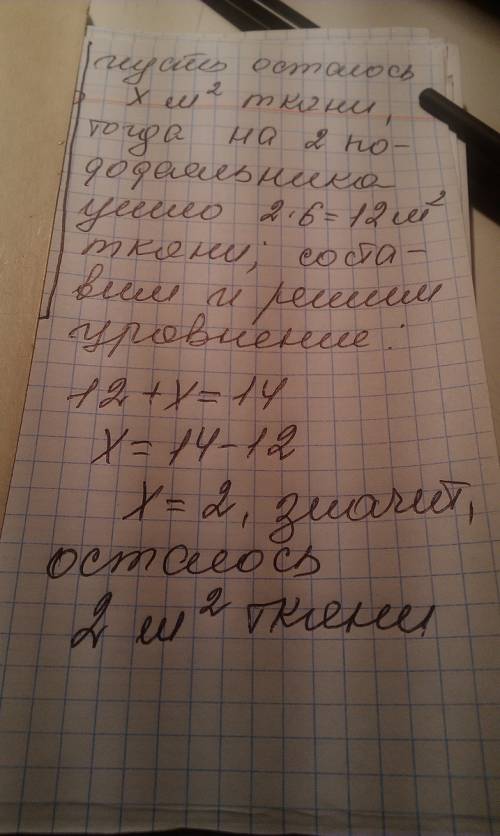 пусть осталось
x м² ткани,
тогда на 2 по-
додеяльника
ушло 2·6=12м²
ткани; соста-
вим и решим
уровнение:
12+x=14
x=14-12
x=2, значит,
осталось
2 м² ткани